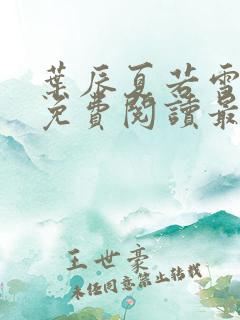 葉辰夏若雪
免費閱讀最
王世豪
未經同意禁止轉載